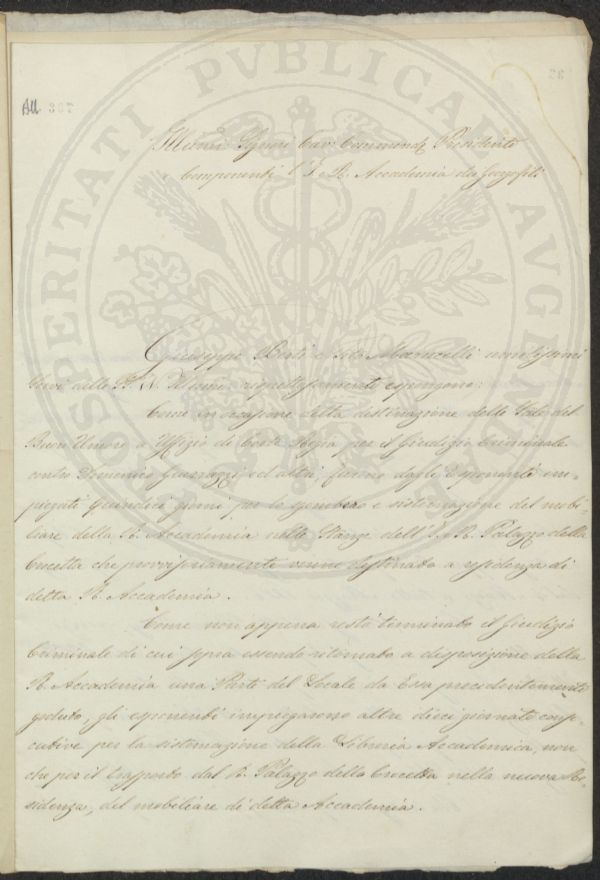 All. 367
Illmi Signori Cav. Commend. Presidente
e Componenti l'I. R. Accademia dei Georgofili
Giuseppe Berti e Mancelli umilissimi
Servi delle rispettosamente espongono:
Come in occasione della destinazione delle Sale del
Buon Umore a Uffizio di Corte Regia per il Giudizio Criminale
contro Domenico Guerrazzi ed altri, furono dagli Esponenti im-
piegati Quindici giorni per lo sgombero e sistemazione del mobi-
liare della R. Accademia nelle Stanze dell'I. e R. Palazzo della
Crocetta che provvisoriamente venne destinato a residenza di
detta R. Accademia.
Come non appena restò terminato il Giudizio
Criminale di cui sopra essendo ritornato a disposizione della
R. Accademia una Parte del Locale da Essa precedentemente
goduto, gli esponenti impiegarono altre dieci giornate conse-
cutive per la sistemazione della Libreria Accademica, non
che per il trapporto dal R. Palazzo della Crocetta nella nuova Re-
sidenza, del mobiliare di detta Accademia.
PROSPERITATI PVBLICAE AVGENDAE